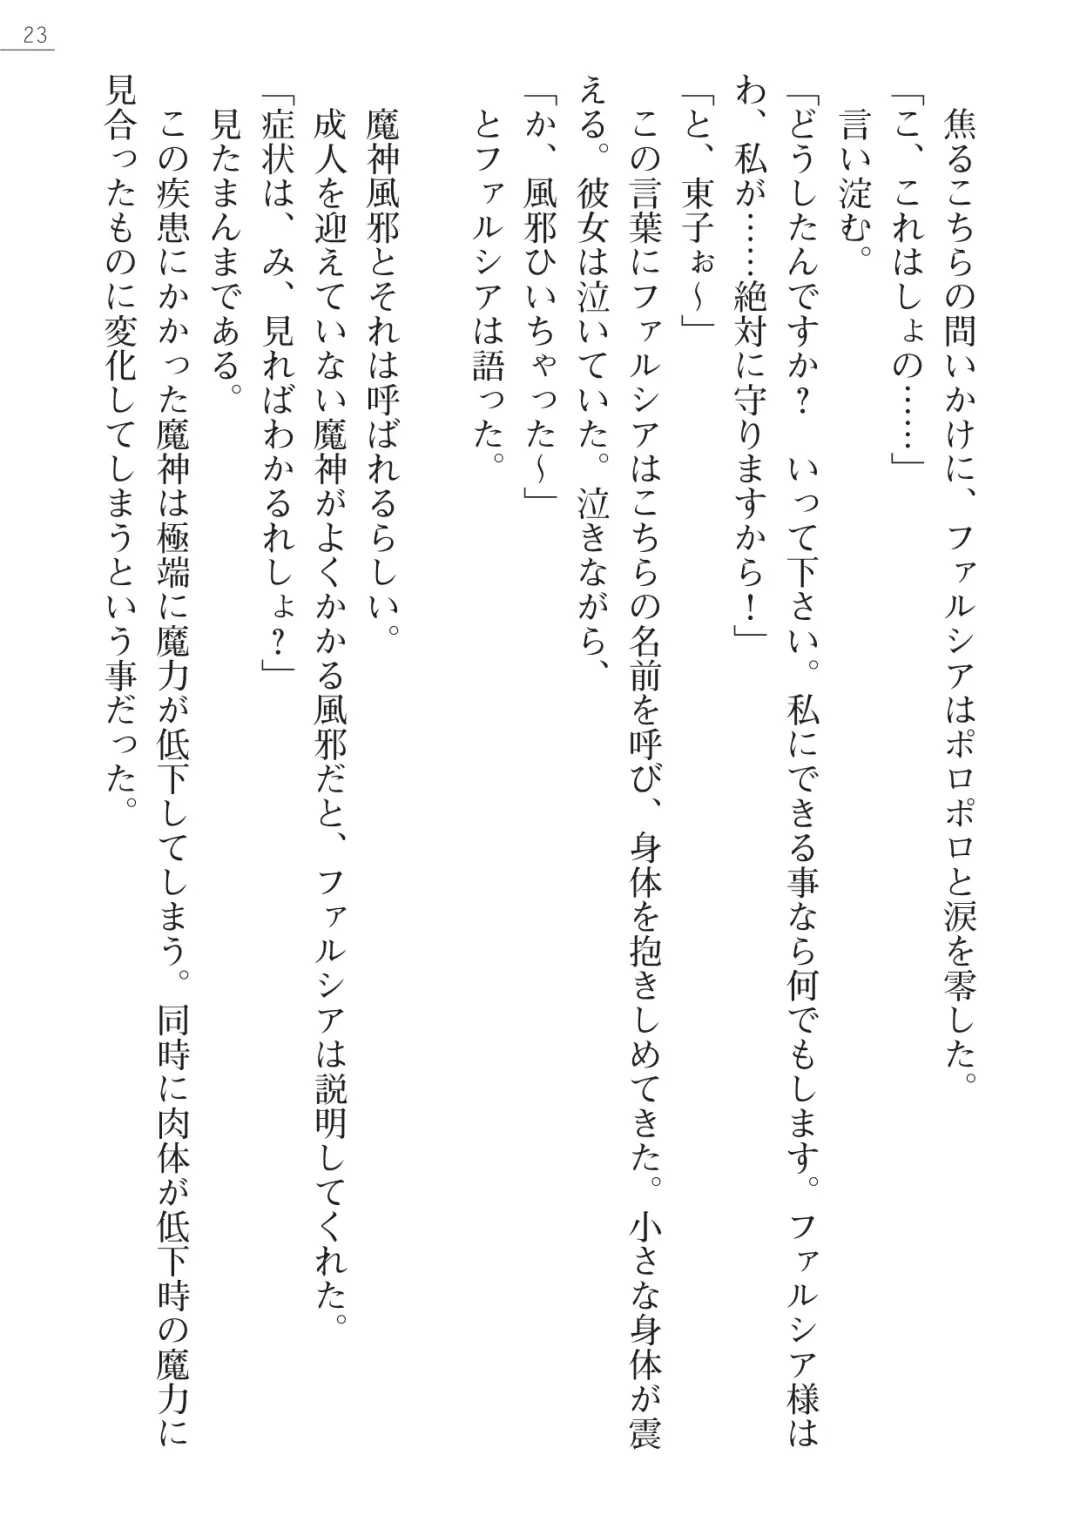 23
焦るこちらの問いかけに、ファルシアはポロポロと涙を零した。
「こ、これはしょの……」
言い淀む。
「どうしたんですか？　いって下さい。私にできる事なら何でもします。ファルシア様は
わ、私が……絶対に守りますから！」
「と、東子ぉ～」
この言葉にファルシアはこちらの名前を呼び、身体を抱きしめてきた。小さな身体が震
える。彼女は泣いていた。泣きながら、
「か、風邪ひいちゃった～」
とファルシアは語った。
魔神風邪とそれは呼ばれるらしい。
成人を迎えていない魔神がよくかかる風邪だと、ファルシアは説明してくれた。
「症状は、み、見ればわかるれしょ？」
見たまんまである。
この疾患にかかった魔神は極端に魔力が低下してしまう。同時に肉体が低下時の魔力に
見合ったものに変化してしまうという事だった。